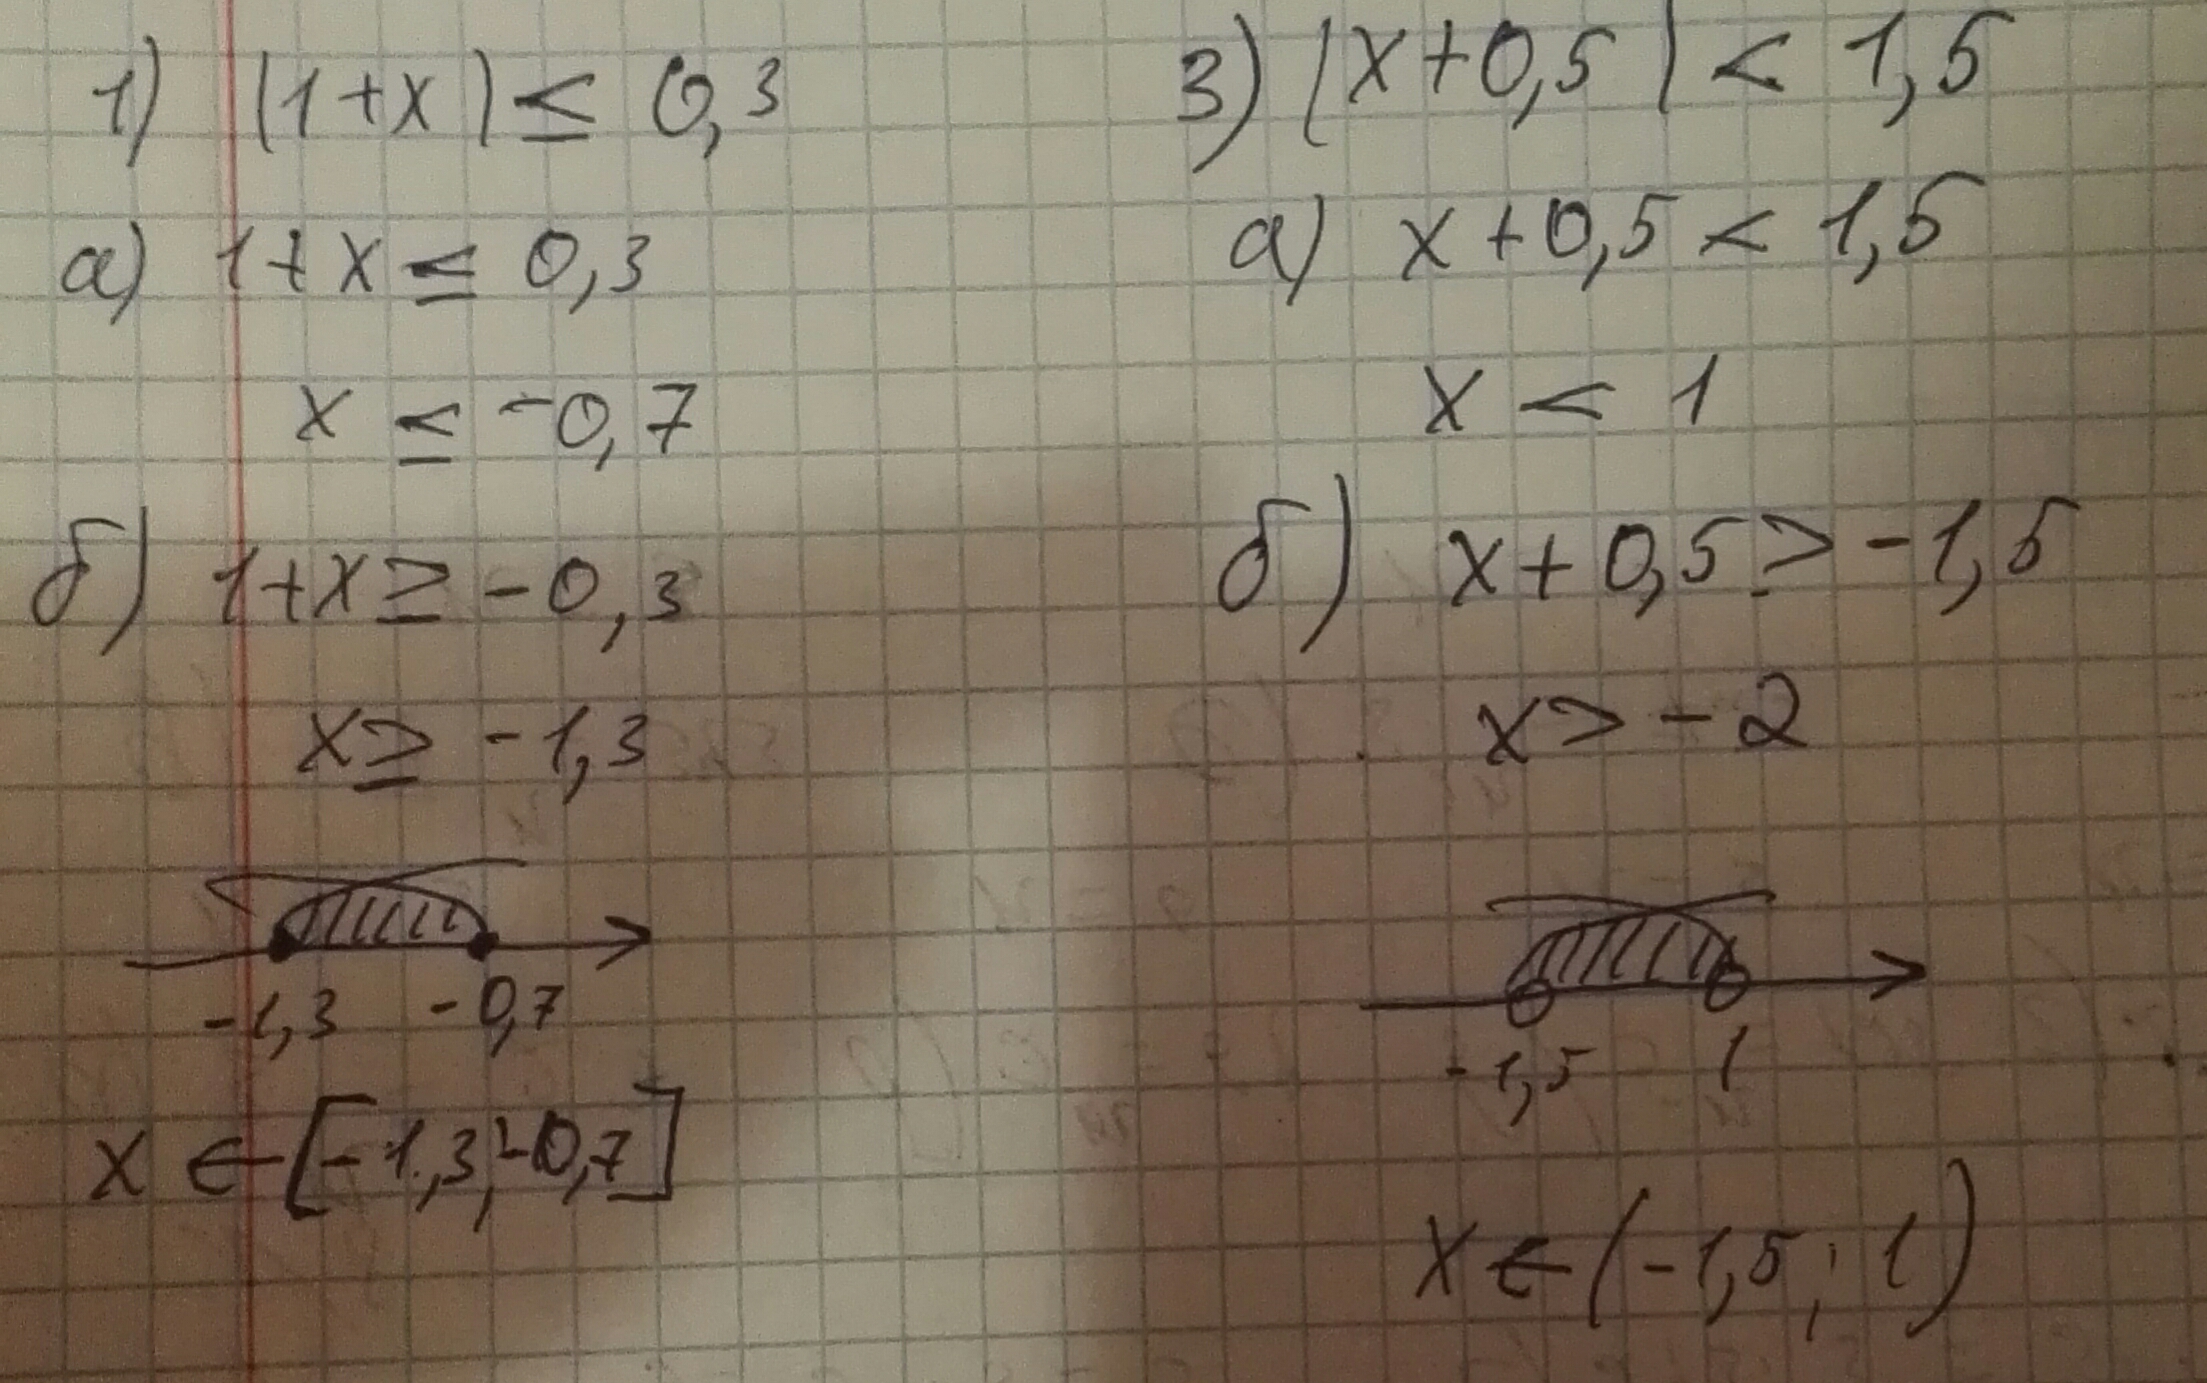 1) |1+x| ≤ 0,3
а) 1+x ≤ 0,3
x ≤ -0,7
б) 1+x ≥ -0,3
x ≥ -1,3
-1,3 -0,7
x ∈ [-1,3; -0,7]
3) |x+0,5| < 1,5
а) x+0,5 < 1,5
x < 1
б) x+0,5 > -1,5
x > -2
-1,5 1
x ∈ (-1,5; 1)